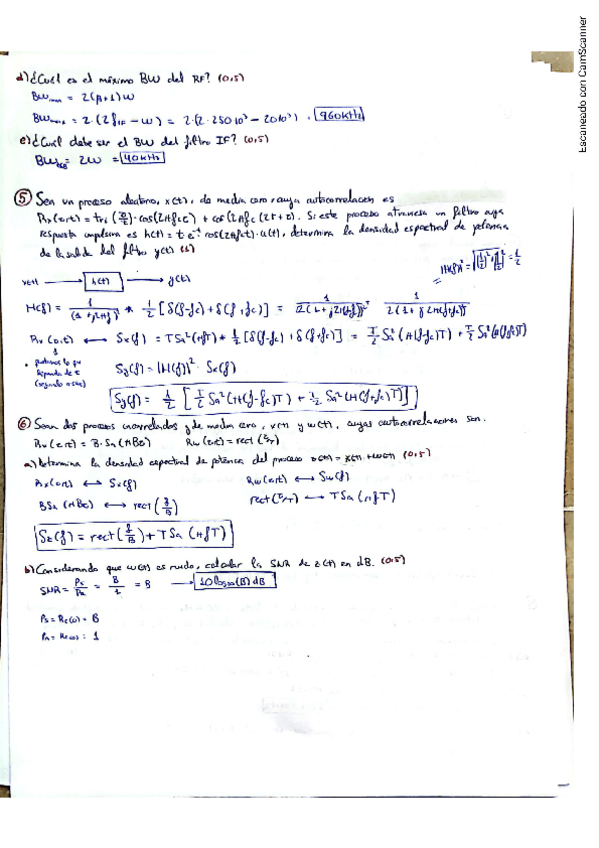 d) ¿Cuál es el máximo BW del RF? (0,5)
BWmax = 2(β+1)W
BWmax = 2·(2fIF − W) = 2·(2·250·10³ − 20·10³) = 960kHz
e) ¿Cuál debe ser el BW del filtro IF? (0,5)
= 2W = 40kHz
⑤ Sea un proceso aleatorio, x(t), de media cero y cuya autocorrelación es
Rx(τ,t) = tri(τ/T)·cos(2πfcτ) + cos(2πfc(2t+τ). Si este proceso atraviesa un filtro cuya
respuesta impulsiva es h(t) = t e⁻ᵗ cos(2πfct)·u(t), determina la densidad espectral de potencia
de la salida del filtro y(t) (1)
|H(f)|² = = 1/2
x(t) → h(t) → y(t)
H(f) = 1/(1+j2πf)² * 1/2 [δ(f-fc)+δ(f+fc)] =
Rx(τ,t) ↔ Sx(f) = TSa²(πfT) * 1/2 [δ(f-fc)+δ(f+fc)] = T/2 Sa²(π(f-fc)T) + T/2 Sa²(π(f+fc)T)
Sy(f) = |H(f)|²·Sx(f)
Sy(f) = 1/2 [T/2 Sa²(π(f-fc)T) + T/2 Sa²(π(f+fc)T)]
⑥ Sean dos procesos incorrelados y de media cero, x(t) y w(t), cuyas autocorrelaciones son:
Rx(τ,t) = B·Sa(πBτ) Rw(τ,t) = rect(τ/T)
a) Determina la densidad espectral de potencia del proceso z(t) = x(t) + w(t) (0,5)
Rx(τ,t) ↔ Sx(f) Rw(τ,t) ↔ Sw(f)
BSa(πBτ) ↔ rect(f/B) rect(τ/T) ↔ TSa(πfT)
Sz(f) = rect(f/B) + TSa(πfT)
b) Considerando que w(t) es ruido, calcular la SNR de z(t) en dB. (0,5)
SNR = Ps/Pn = B/1 = B → 10log₁₀(B) dB
Ps = Rx(0) = B
Pn = Rw(0) = 1
Escaneado con CamScanner